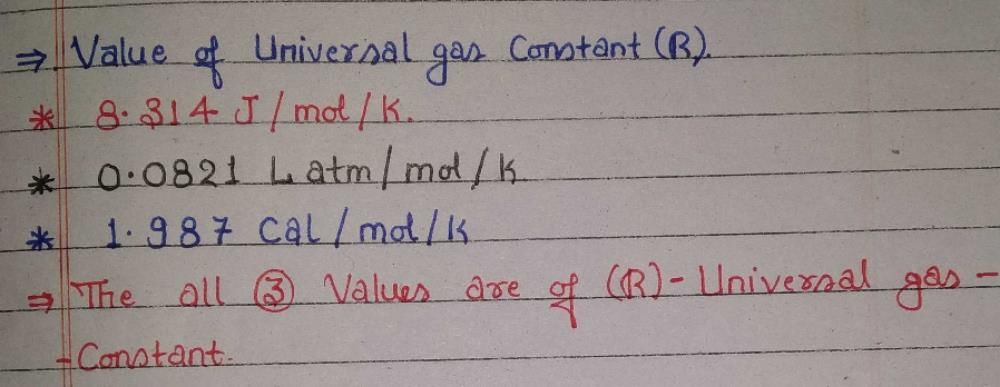 ⇒ Value of Universal gas Constant (R).
* 8.314 J/mol/K.
* 0.0821 L atm/mol/K
* 1.987 Cal/mol/K
⇒ The all ③ Values are of (R)-Universal gas-
-Constant.